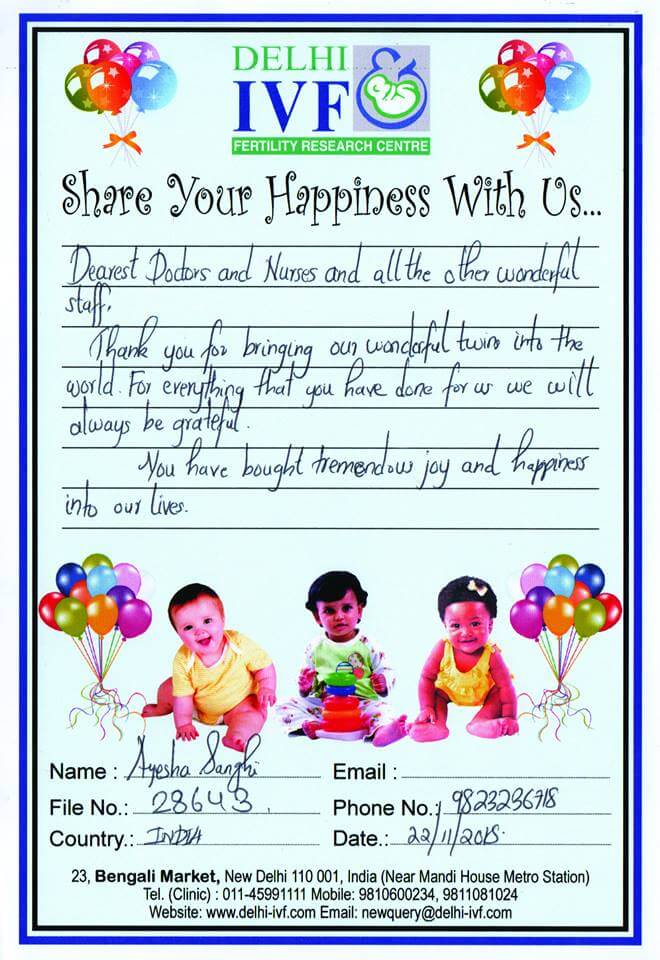 DELHI
IVF
FERTILITY RESEARCH CENTRE
Share Your Happiness With Us...
Dearest Doctors and Nurses and all the other wonderful
staff,
Thank you for bringing our wonderful twins into the
world. For everything that you have done for us we will
always be grateful.
You have bought tremendous joy and happiness
into our lives.
Name : Ayesha Sanghi
Email :
File No.: 28643
Phone No.: 9823236718
Country.: INDIA
Date.: 22/11/2015
23, Bengali Market, New Delhi 110 001, India (Near Mandi House Metro Station)
Tel. (Clinic) : 011-45991111 Mobile: 9810600234, 9811081024
Website: www.delhi-ivf.com Email: newquery@delhi-ivf.com